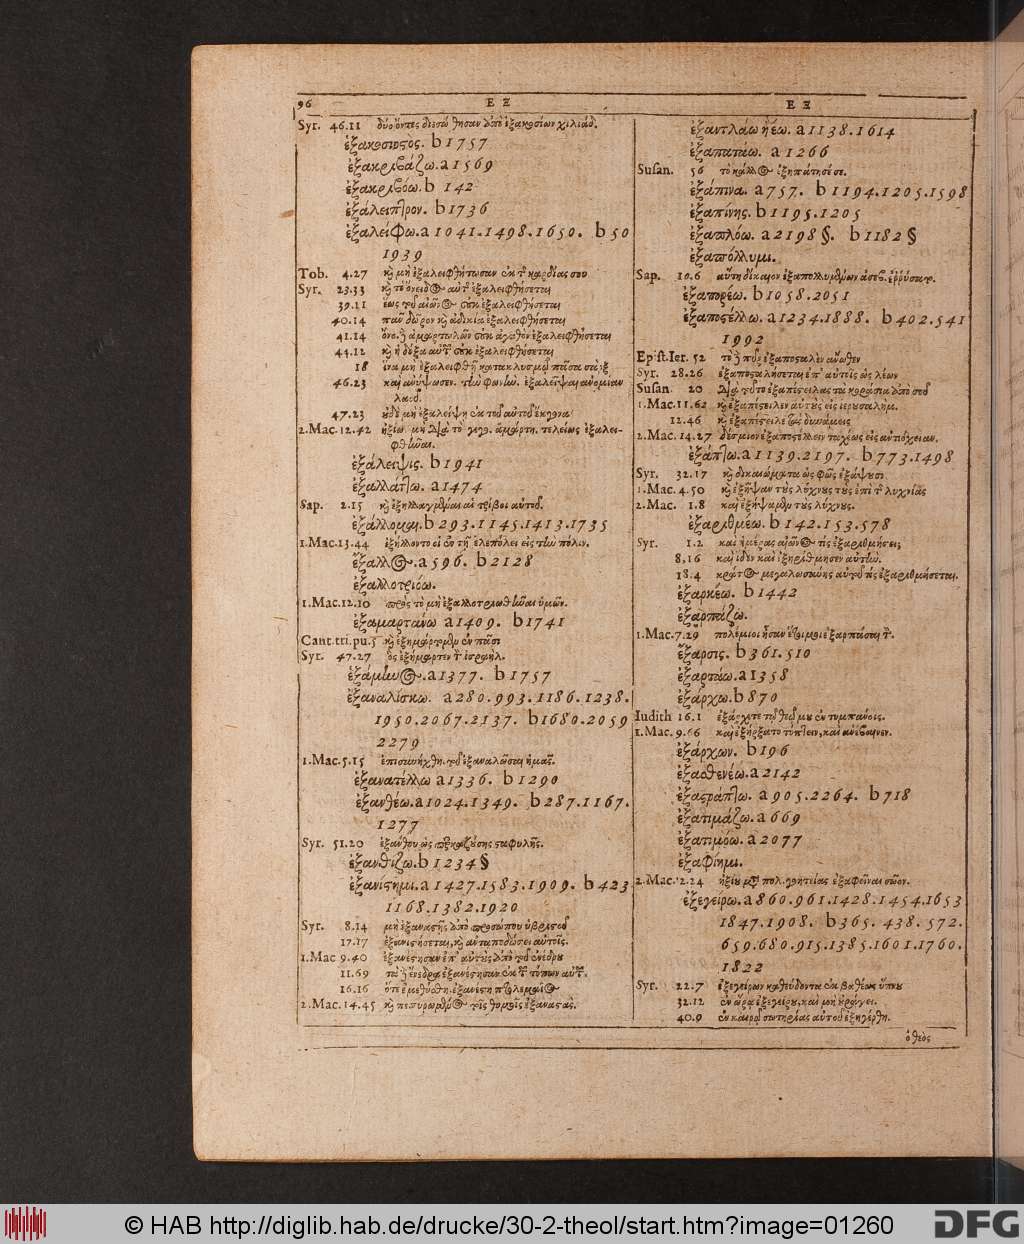 96 Ε Ξ Ε Ξ
Syr. 46.11 δύο ὄντες διεσώθησαν ἀπὸ ἑξακοσίων χιλιάδ.
ἑξακοσιοστός. b 1757
ἐξακριβάζω. a 1569
ἐξακριβόω. b 142
ἐξάλειπτρον. b 1736
ἐξαλείφω. a 1041.1498.1650. b 50
1939
Tob. 4.27 καὶ μὴ ἐξαλειφθήτωσαν ἐκ τῆς καρδίας σου
Syr. 23.33 καὶ τὸ ὄνειδος αὐτῆς ἐξαλειφθήσεται
39.11 ἕως τοῦ αἰῶνος οὐκ ἐξαλειφθήσεται
40.14 πᾶν δῶρον καὶ ἀδικία ἐξαλειφθήσεται
41.14 ἁμαρτωλῶν οὐκ ἀγαθὸν ἐξαλειφθήσεται
44.12 καὶ ἡ δόξα αὐτῶν οὐκ ἐξαλειφθήσεται
18 ἵνα μὴ ἐξαλειφθῇ κατακλυσμῷ πᾶσα σὰρξ
46.23 καὶ ἀνύψωσεν τὴν φωνὴν ἐξαλεῖψαι ἀνομίαν
λαοῦ.
47.23 οὐδὲ μὴ ἐξαλείψῃ ἐκ τοῦ αὐτοῦ ἔκγονα
2. Mac. 12.42 τελείως ἐξαλει-
φθῆναι.
ἐξάλειψις. b 1941
ἐξαλλάττω. a 1474
Sap. 2.15 καὶ ἐξηλλαγμέναι αἱ τρίβοι αὐτοῦ.
ἐξάλλομαι. b 293.1145.1413.1735
1. Mac. 13.44 ἐξήλλοντο οἱ ἐν τῇ ἑλεπόλει εἰς τὴν πόλιν.
ἔξαλλος. a 596. b 2128
ἐξαλλοτριόω.
1. Mac. 12.10 πρὸς τὸ μὴ ἐξαλλοτριωθῆναι ὑμῶν.
ἐξαμαρτάνω a 1409. b 1741
Cant. tri. pu. 5 καὶ ἐξημάρτομεν ἐν πᾶσι
Syr. 47.27 ὃς ἐξήμαρτεν τὸν ἰσραήλ.
ἑξάμηνος. a 1377. b 1757
ἐξαναλίσκω. a 280.993.1186.1238.
1950.2067.2137. b 1680.2059
2279
1. Mac. 5.15 ἐπισυνήχθη. τοῦ ἐξαναλῶσαι ἡμᾶς.
ἐξανατέλλω a 1336. b 1290
ἐξανθέω. a 1024.1349. b 287.1167.
1277
Syr. 51.20 ἐξάνθου ὡς περκαζούσης σταφυλῆς.
ἐξανθίζω. b 1234 §
ἐξανίστημι. a 1427.1583.1909. b 423
1168.1382.1920
Syr. 8.14 μὴ ἐξαναστῇς ἀπὸ προσώπου ὑβριστοῦ
17.17 ἐξαναστήσεται, καὶ ἀνταποδώσει αὐτοῖς.
1. Mac 9.40 ἐξανέστησαν ἐπ' αὐτοὺς ἀπὸ τοῦ ἐνέδρου
11.69 τὰ δὲ ἔνεδρα ἐξανέστησαν ἐκ τῶν τόπων αὐτῶν.
16.16 ὅτε ἐμεθύσθη. ἐξανέστη πτολεμαῖος
2. Mac. 14.45 καὶ πεπυρωμένος τοῖς θυμοῖς ἐξαναστάς.
ἐξαντλάω ἢ έω. a 1138.1614
ἐξαπατάω. a 1266
Susan. 56 τὸ κάλλος ἐξηπάτησέ σε.
ἐξάπινα. a 757. b 1194.1205.1598
ἐξαπίνης. b 1195.1205
ἐξαπλόω. a 2198 §. b 1182 §
ἐξαπόλλυμι.
Sap. 10.6 αὕτη δίκαιον ἐξαπολλυμένων ἀσεβ. ἐρρύσατο.
ἐξαπορέω. b 1058.2051
ἐξαποστέλλω. a 1234.1888. b 402.541
1992
Epist. Ier. 52 τὸ δὲ πῦρ ἐξαποσταλὲν ἄνωθεν
Syr. 28.26 ἐξαποσταλήσεται ἐπ' αὐτοῖς ὡς λέων
Susan. 20 διὰ τοῦτο ἐξαπέστειλας τὰ κοράσια ἀπὸ σοῦ
1. Mac. 11.62 καὶ ἐξαπέστειλεν αὐτοὺς εἰς ιερουσαλημ.
12.46 καὶ ἐξαπέστειλε τὰς δυνάμεις
2. Mac. 14.27 δέσμιον ἐξαποστέλλειν ταχέως εἰς αντιόχειαν.
ἐξάπτω. a 1139.2197. b 773.1498
Syr. 32.17 καὶ δικαιώματα ὡς φῶς ἐξάψουσι
1. Mac. 4.50 καὶ ἐξῆψαν τοὺς λύχνους τοὺς ἐπὶ τῆς λυχνίας
2. Mac. 1.8 καὶ ἐξήψαμεν τοὺς λύχνους.
ἐξαριθμέω. b 142.153.578
Syr. 1.2 καὶ ἡμέρας αἰῶνος τίς ἐξαριθμήσει;
8,16 καὶ ἴδεν καὶ ἐξηρίθμησεν αὐτήν.
18.4 κράτος μεγαλωσύνης αὐτοῦ τίς ἐξαριθμήσεται.
ἐξαρκέω. b 1442
ἐξαρπάζω.
1. Mac. 7.29 πολέμιοι ἦσαν ἕτοιμοι ἐξαρπάσαι τὸν.
ἔξαρσις. b 361.510
ἐξαρτάω. a 1358
ἐξάρχω. b 870
Iudith 16.1 ἐξάρχετε τῷ θεῷ μου ἐν τυμπάνοις.
1. Mac. 9.66 καὶ ἐξήρξατο τύπτειν, καὶ ἀνέβαινεν.
ἐξάρχων. b 196
ἐξασθενέω. a 2142
ἐξαστράπτω. a 905.2264. b 718
ἐξατιμάζω. a 669
ἐξατιμόω. a 2077
ἐξαφίημι.
2. Mac. 12.24 ἠξίου μετὰ πολ. γοητείας ἐξαφεῖναι σῶον.
ἐξεγείρω. a 860.961.1428.1454.1653
1847.1908. b 365. 438. 572.
659.680.915.1385.1601.1760.
1822
Syr. 22.7 ἐξεγείρων καθεύδοντα ἐκ βαθέως ὕπνου
32.12 ἐν ὥρᾳ ἐξεγείρου, καὶ μὴ οὐράγει.
40.9 ἐν καιρῷ σωτηρίας αὐτοῦ ἐξηγέρθη.
ὁ θεὸς
© HAB http://diglib.hab.de/drucke/30-2-theol/start.htm?image=01260
DFG